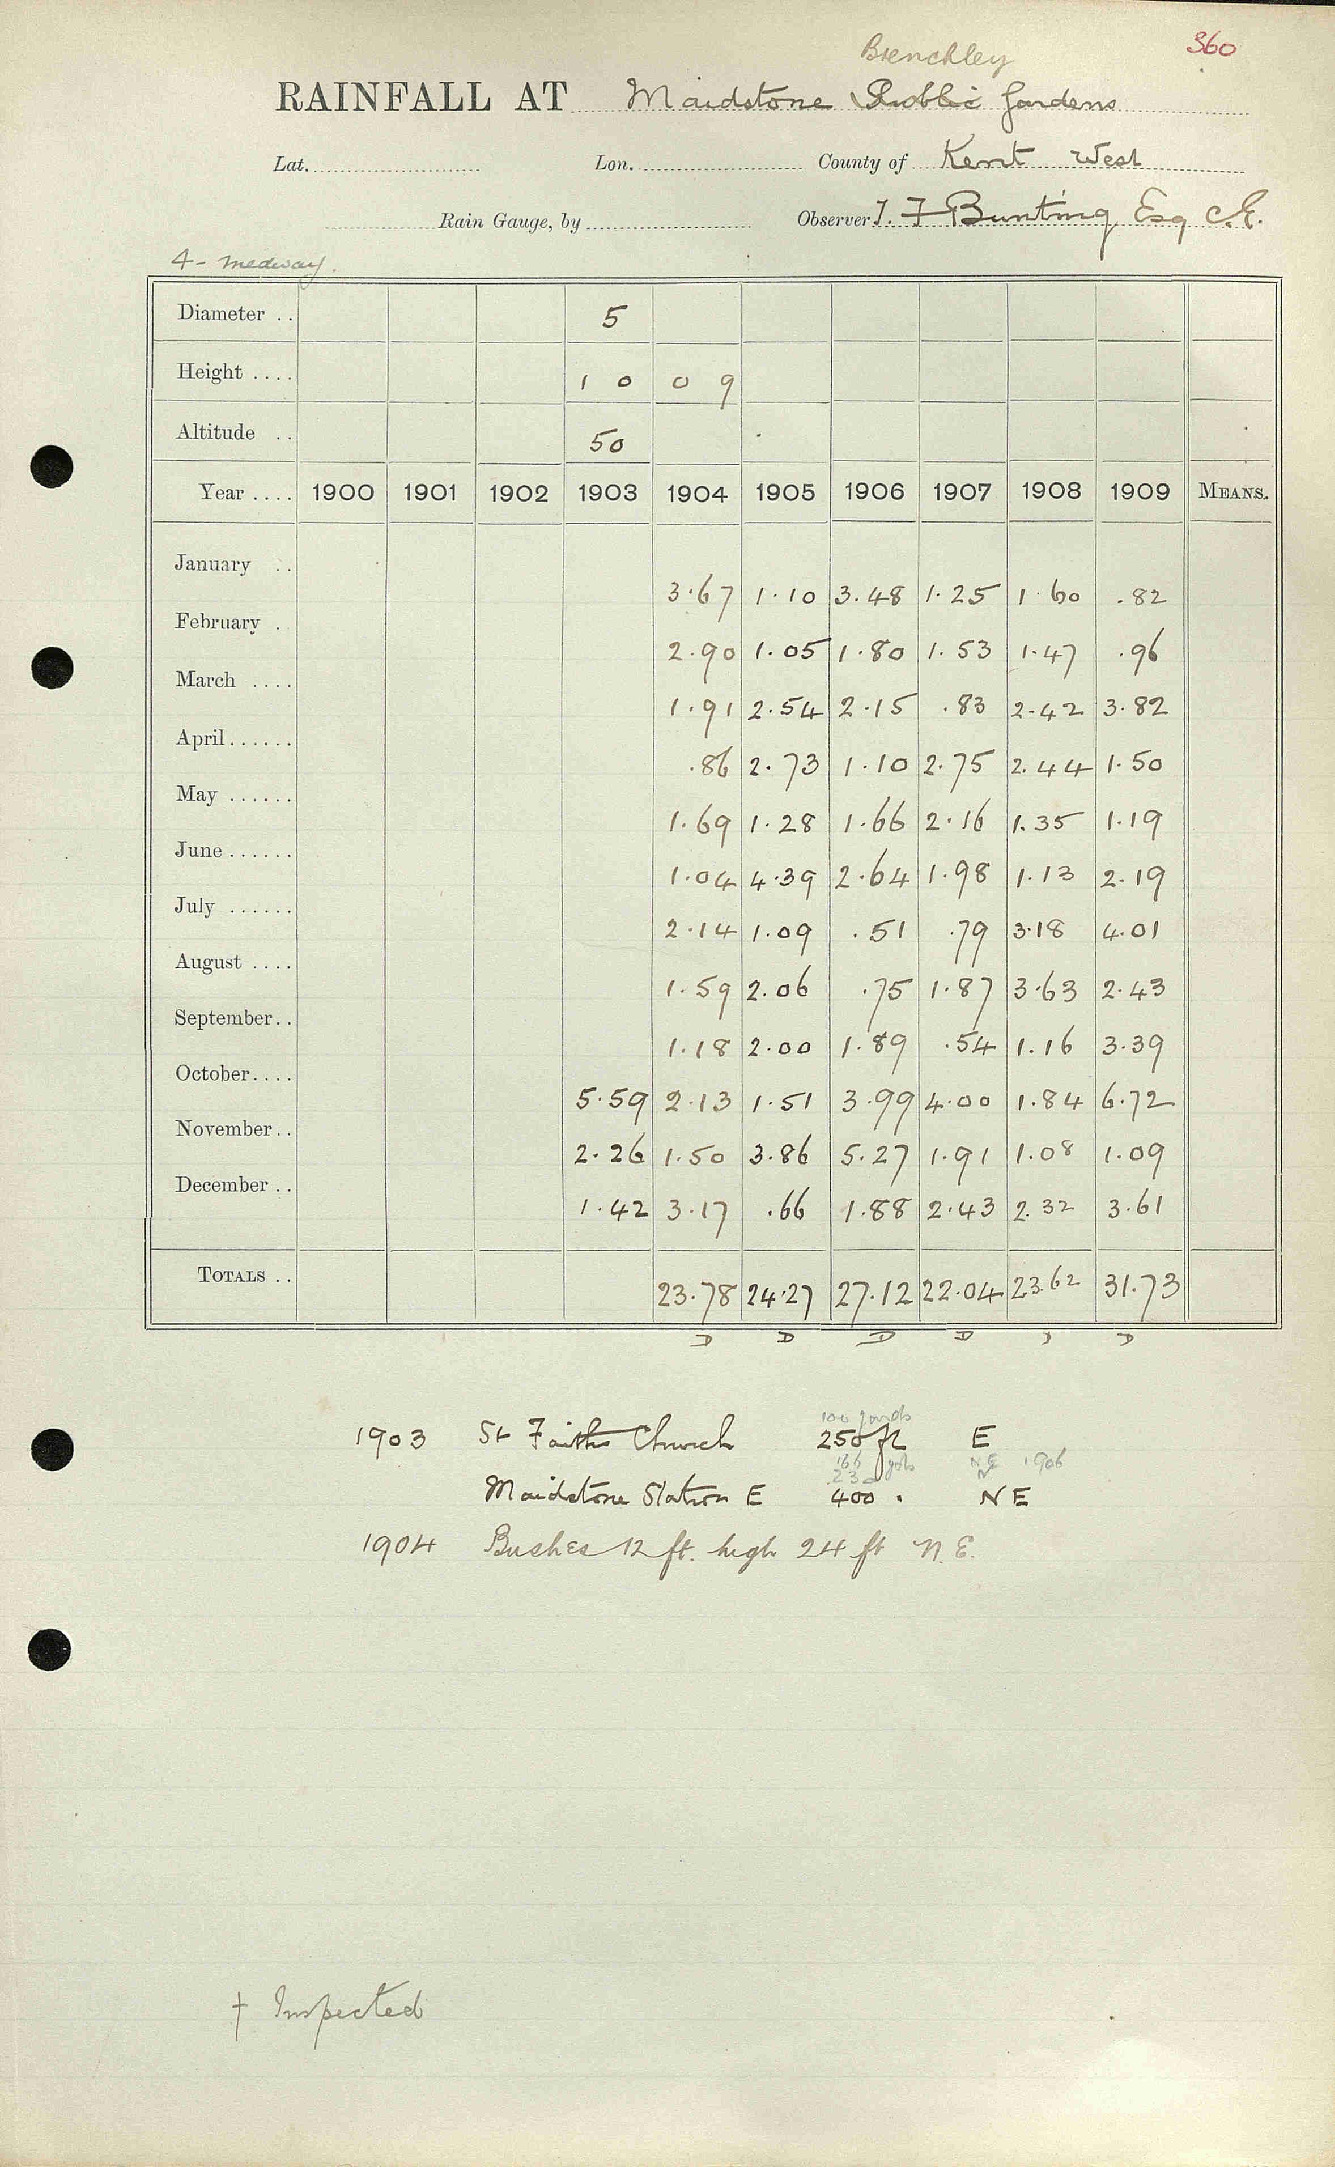 360
Brenchley
RAINFALL AT Maidstone Public Gardens
Lat. Lon. County of Kent West
Rain Gauge, by Observer T. F Bunting Esq C.E.
4 - Medway.
Diameter .. 5
Height .... 1 0 0 9
Altitude .. 50
Year .... 1900 1901 1902 1903 1904 1905 1906 1907 1908 1909 MEANS.
January .. 3.67 1.10 3.48 1.25 1.60 .82
February . 2.90 1.05 1.80 1.53 1.47 .96
March .... 1.91 2.54 2.15 .83 2.42 3.82
April...... .86 2.73 1.10 2.75 2.44 1.50
May ...... 1.69 1.28 1.66 2.16 1.35 1.19
June...... 1.04 4.39 2.64 1.98 1.13 2.19
July ...... 2.14 1.09 .51 .79 3.18 4.01
August .... 1.59 2.06 .75 1.87 3.63 2.43
September.. 1.18 2.00 1.89 .54 1.16 3.39
October.... 5.59 2.13 1.51 3.99 4.00 1.84 6.72
November.. 2.26 1.50 3.86 5.27 1.91 1.08 1.09
December .. 1.42 3.17 .66 1.88 2.43 2.32 3.61
TOTALS .. 23.78 24.27 27.12 22.04 23.62 31.73
D D D D D D
100 yards
1903 St Faiths Church 250 ft E
166 yds NE 1906
230 N
Maidstone Station E 400 . NE
1904 Bushes 12 ft. high 24 ft N.E.
† Inspected